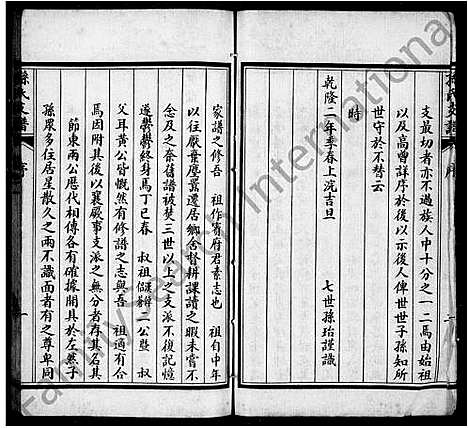 支最切者亦不過族人中十分之一二焉由始祖
以及高曾詳序於後以示後人俾世世子孫知所
世守於不替云
時
乾隆二年季春上浣吉旦
七世孫珆謹識
家譜之修吾 祖作賓府君素志也 祖自中年
以往厭葉塵囂還居鄉舍督耕課讀之暇未嘗不
念及之奈舊譜被焚三世以上之支派不復記憶
遂鬱鬱終身焉丁巳春 叔祖 二公曁 叔
父耳黃公皆慨然有修譜之志與吾 祖適有合
焉因附其後以襄厥事支派之無分者存其名其
節東兩公歷代相傳各有確據開具於左然子
孫眾多住居星散久之兩不識面者有之尊卑同
孫氏支譜
序
一
FamilySearch International